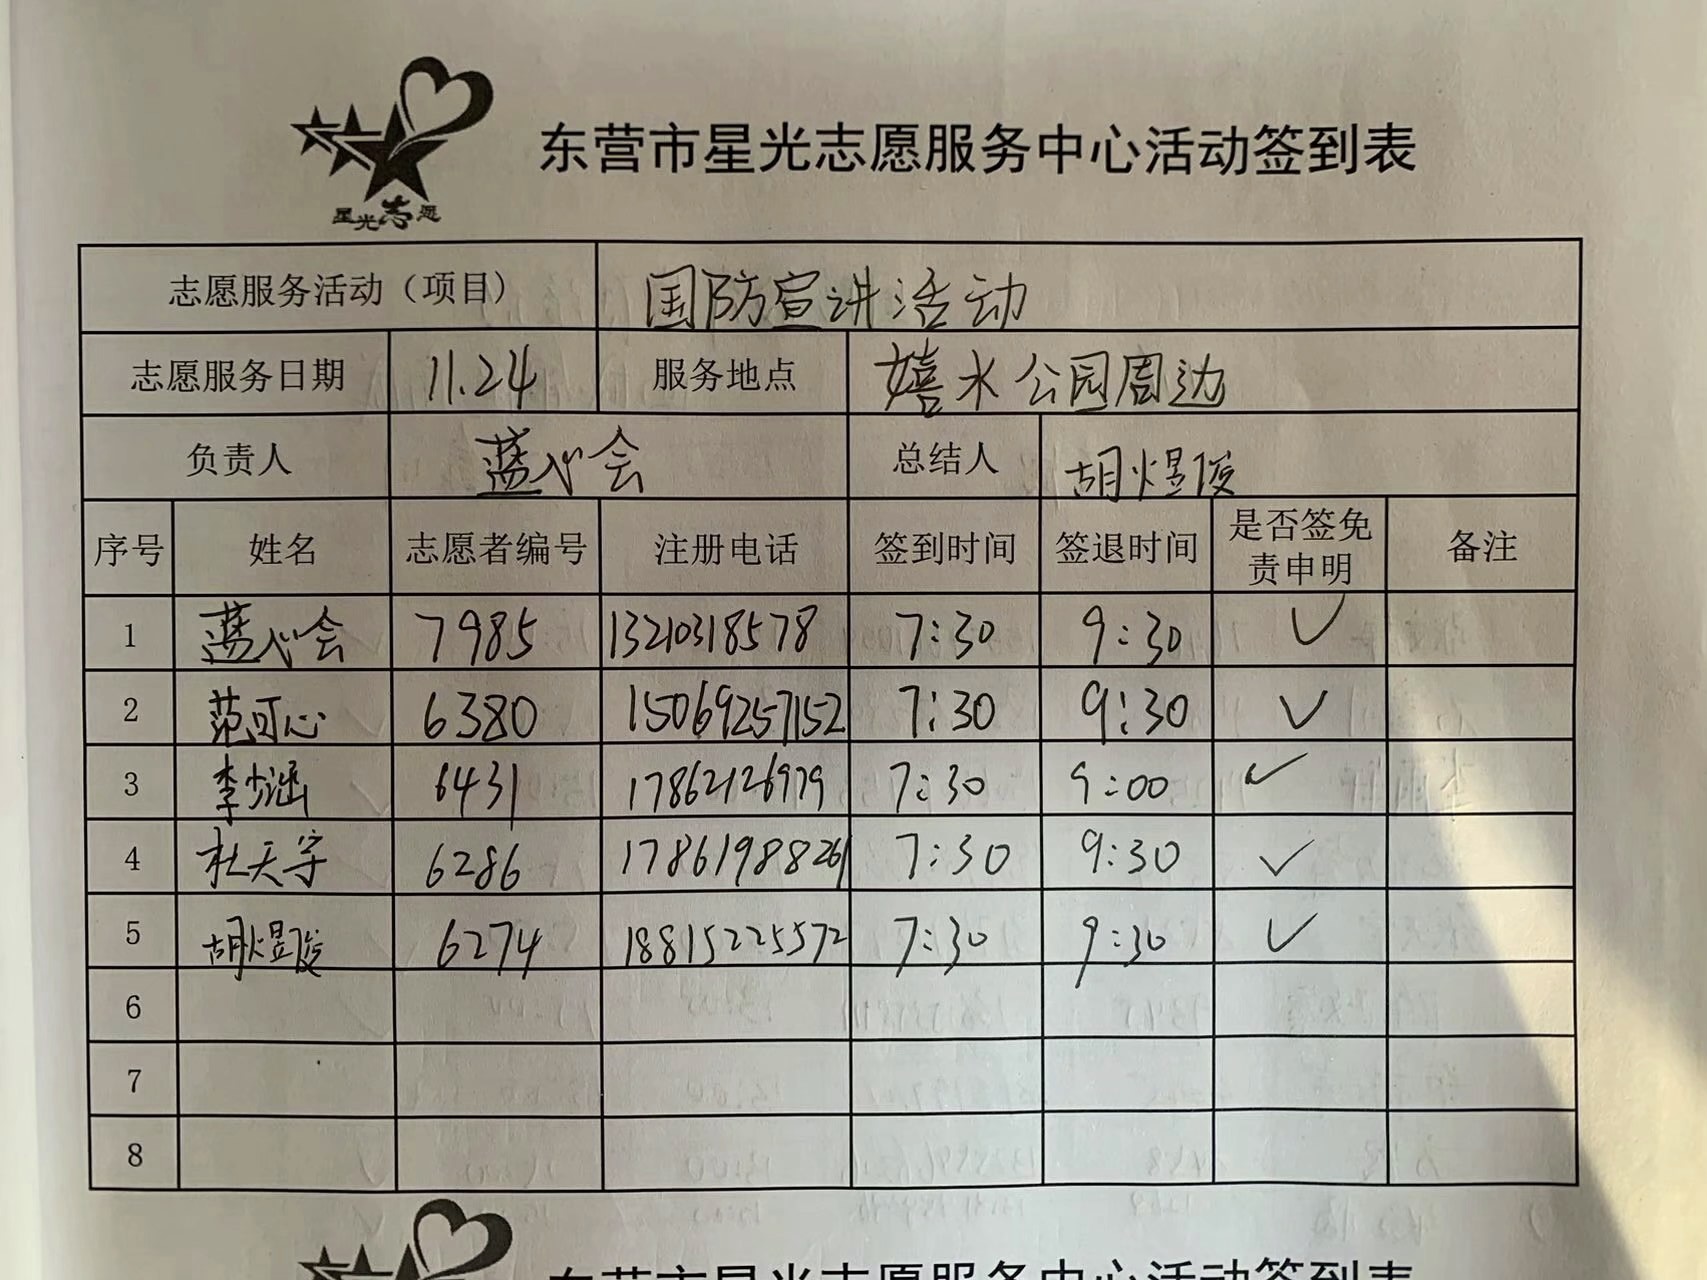 东营市星光志愿服务中心活动签到表
星光志愿
志愿服务活动（项目） 国防宣讲活动
志愿服务日期 11.24 服务地点 嬉水公园周边
负责人 蓝心会 总结人 胡煜俊
序号 姓名 志愿者编号 注册电话 签到时间 签退时间 是否签免责申明 备注
1 蓝心会 7985 13210318578 7:30 9:30 ✓
2 范可心 6380 15069257152 7:30 9:30 ✓
3 李少涵 6431 17862126979 7:30 9:00 ✓
4 杜天宇 6286 17861988261 7:30 9:30 ✓
5 胡煜俊 6274 18815225572 7:30 9:30 ✓
6
7
8
东营市星光志愿服务中心活动签到表